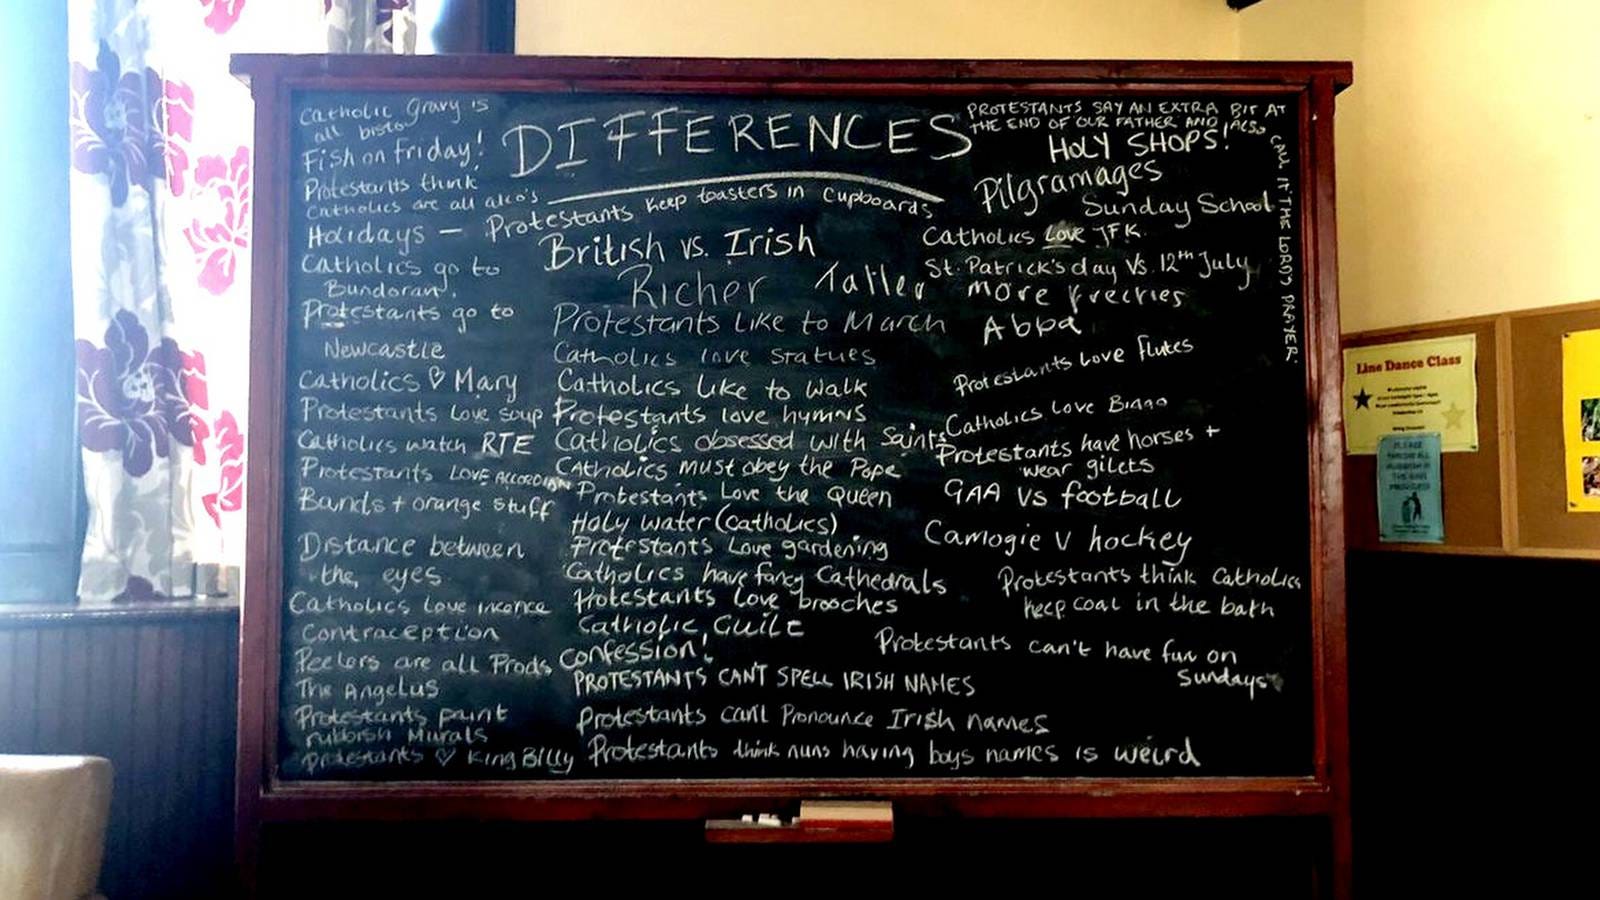 DIFFERENCES
Catholic Gravy is
all bisto
Fish on Friday!
Protestants think
Catholics are all alco's
Holidays —
Catholics go to
Bundoran.
Protestants go to
Newcastle
Catholics ♡ Mary
Protestants Love soup
Catholics watch RTE
Protestants LOVE ACCORDIAN
Bands + orange stuff
Distance between
the, eyes
Catholics Love incence
Contraception
Peelers are all Prods
The Angelus
Protestants paint
rubbish Murals
Protestants ♡ King Billy
Protestants keep toasters in Cupboards
British vs. Irish
Richer Taller
Protestants Like to March
Catholics love statues
Catholics like to walk
Protestants love hymns
Catholics obsessed with Saints
Catholics must obey the Pope
Protestants Love the Queen
Holy water (catholics)
Protestants Love gardening
Catholics have fancy Cathedrals
Protestants love brooches
Catholic Guilt
Confession!
PROTESTANTS CAN'T SPELL IRISH NAMES
Protestants can't Pronounce Irish names
Protestants think nuns having boys names is weird
PROTESTANTS SAY AN EXTRA BIT AT
THE END OF OUR FATHER AND ALSO
CALL IT 'THE LORD'S PRAYER.
HOLY SHOPS!
Pilgramages
Sunday School
Catholics Love JFK
St. Patrick's day Vs. 12th July
more freckles
Abba
Protestants Love flutes
Catholics Love Bingo
Protestants have horses +
wear gilets
GAA vs football
Camogie V hockey
Protestants think Catholics
keep coal in the bath
Protestants can't have fun on
Sundays
Line Dance Class